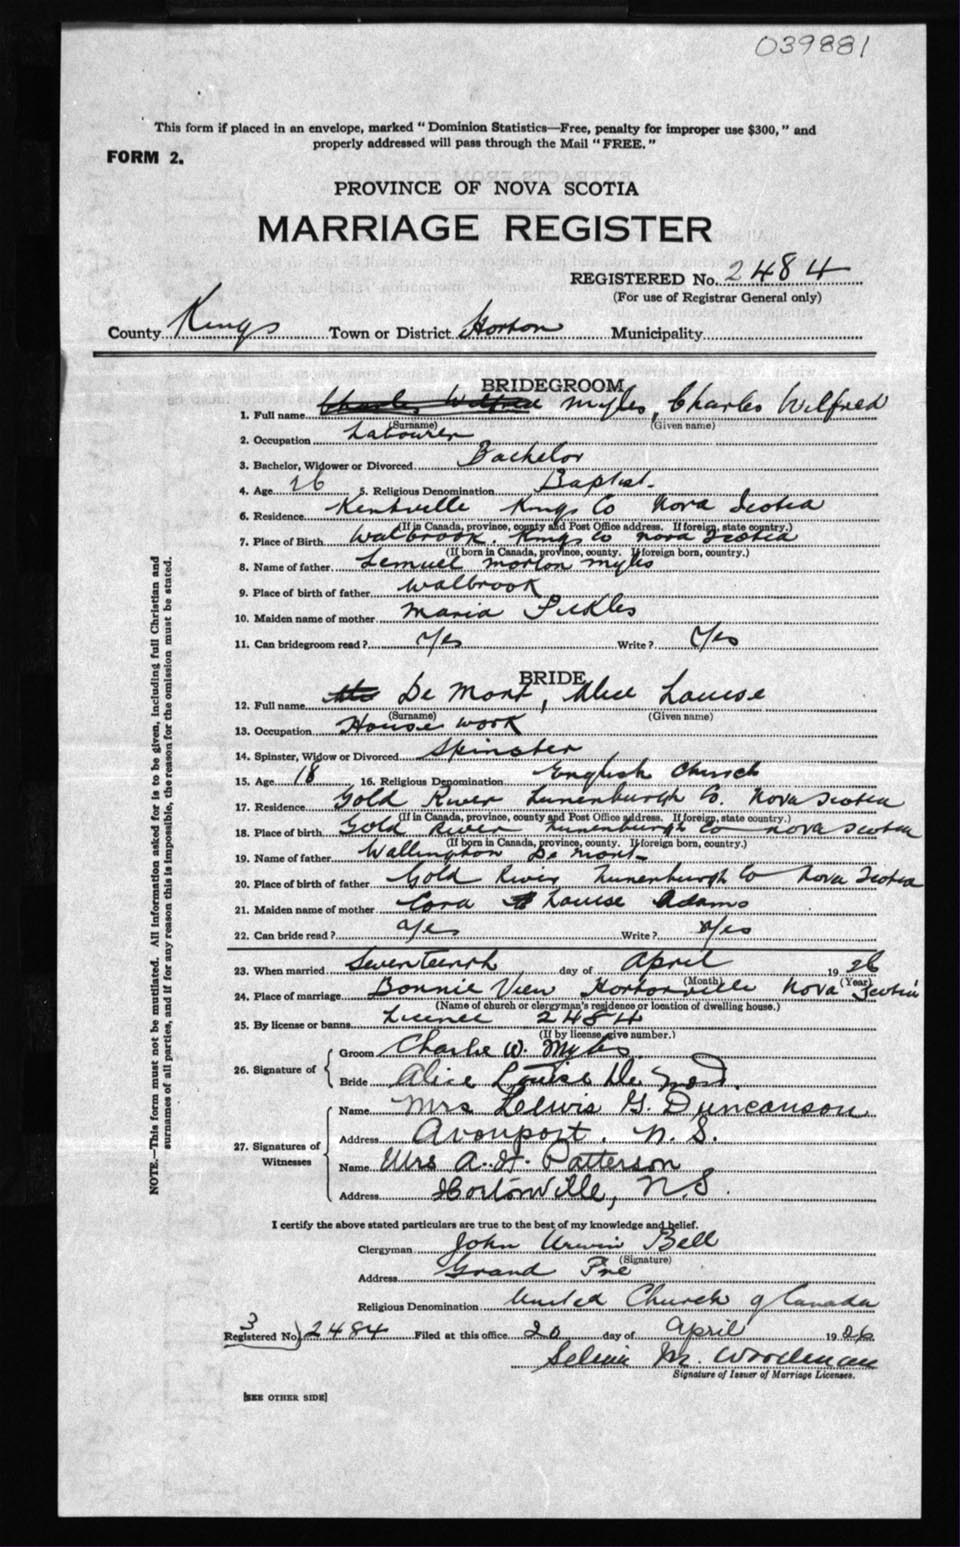 039881
This form if placed in an envelope, marked " Dominion Statistics—Free, penalty for improper use $300, " and
properly addressed will pass through the Mail " FREE. "
FORM 2.
PROVINCE OF NOVA SCOTIA
MARRIAGE REGISTER
REGISTERED No. 2484
(For use of Registrar General only)
County Kings Town or District Horton Municipality
BRIDEGROOM
1. Full name Charles Wilfred Myles, Charles Wilfred
(Surname) (Given name)
2. Occupation Labourer
3. Bachelor, Widower or Divorced Bachelor
4. Age 26 5. Religious Denomination Baptist.
6. Residence Kentville Kings Co Nova Scotia
(If in Canada, province, county and Post Office address. If foreign, state country.)
7. Place of Birth Walbrook. Kings Co Nova Scotia
(If born in Canada, province, county. If foreign born, country.)
8. Name of father Lemuel Morton Myles
9. Place of birth of father Walbrook
10. Maiden name of mother Maria Pickles
11. Can bridegroom read ? Yes Write ? Yes
BRIDE
12. Full name De Mont, Alice Louise
(Surname) (Given name)
13. Occupation House work
14. Spinster, Widow or Divorced Spinster
15. Age 18 16. Religious Denomination English Church
17. Residence Gold River Lunenburgh Co. Nova Scotia
(If in Canada, province, county and Post Office address. If foreign, state country.)
18. Place of birth Gold River Lunenburgh Co Nova Scotia
(If born in Canada, province, county. If foreign born, country.)
19. Name of father Wallington De Mont
20. Place of birth of father Gold River Lunenburgh Co Nova Scotia
21. Maiden name of mother Cora Louise Adams
22. Can bride read ? Yes Write ? Yes
23. When married Seventeenth day of April 1926
(Month) (Year)
24. Place of marriage Bonnie View Hortonville Nova Scotia
(Name of church or clergyman's residence or location of dwelling house.)
25. By license or banns Licence 2484
(If by license, give number.)
26. Signature of Groom Charlie W. Myles
Bride Alice Louise De Mont.
27. Signatures of Witnesses Name Mrs Lewis G. Duncanson
Address Avonport. N. S.
Name Mrs A. H. Patterson
Address Hortonville, N.S.
I certify the above stated particulars are true to the best of my knowledge and belief.
Clergyman John Urwin Bell
(Signature)
Address Grand Pre
Religious Denomination United Church of Canada
3
Registered No. 2484 Filed at this office 20 day of April 1926
Selina M. Woodman
Signature of Issuer of Marriage Licenses.
[SEE OTHER SIDE]
NOTE.—This form must not be mutilated. All information asked for is to be given, including full Christian and
surnames of all parties, and if for any reason this is impossible, the reason for the omission must be stated.